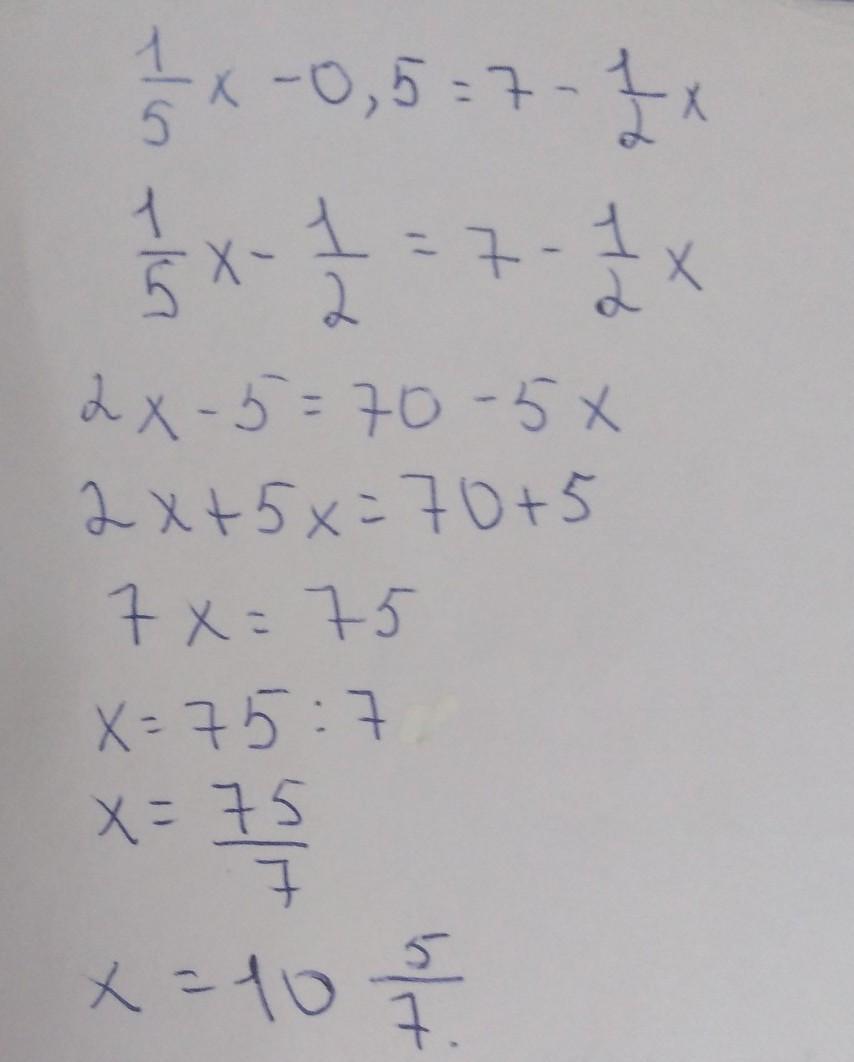 1/5 x - 0,5 = 7 - 1/2 x
1/5 x - 1/2 = 7 - 1/2 x
2x - 5 = 70 - 5x
2x + 5x = 70 + 5
7x = 75
x = 75 : 7
x = 75/7
x = 10 5/7.